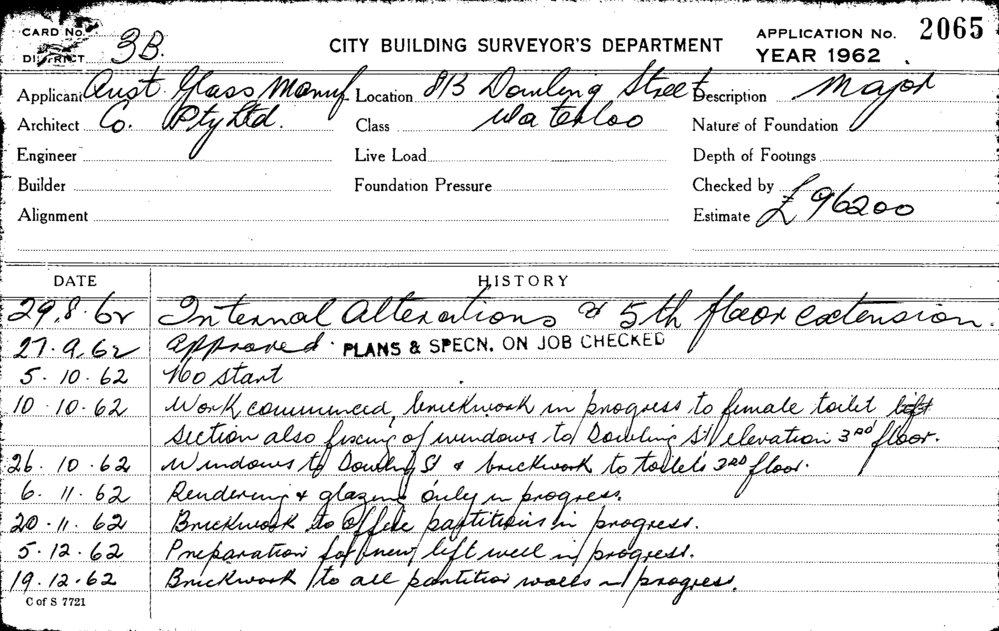 CARD No.
DISTRICT 3B.
CITY BUILDING SURVEYOR'S DEPARTMENT
APPLICATION No. 2065
YEAR 1962
Applicant Aust. Glass Manuf Location 813 Dowling Street Description Major
Architect Co. Pty Ltd. Class Waterloo Nature of Foundation
Engineer Live Load Depth of Footings
Builder Foundation Pressure Checked by
Alignment Estimate £96200
DATE HISTORY
29.8.62 Internal Alterations & 5th floor extension.
27.9.62 Approved. PLANS & SPECN. ON JOB CHECKED
5.10.62 No start
10.10.62 Work commenced, brickwork in progress to female toilet left
section also fixing of windows to Dowling St elevation 3RD floor.
26.10.62 Windows to Dowling St & brickwork to toilets 3RD floor.
6.11.62 Rendering & glazing only in progress.
20.11.62 Brickwork to office partitions in progress.
5.12.62 Preparation for new lift well in progress.
19.12.62 Brickwork to all partition walls in progress.
C of S 7721